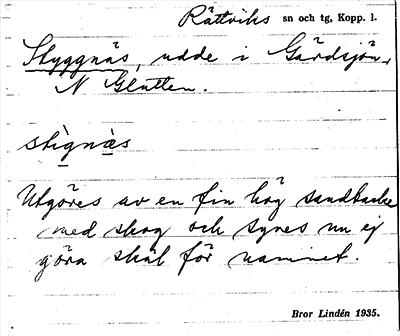 Rättviks sn och tg, Kopp. l.
Styggnäs, udde i Gärdsjön,
N Glutten.
stìgnàs
Utgöres av en fin hög sandbacke
med skog och synes nu ej
göra skäl för namnet.
Bror Lindén 1935.